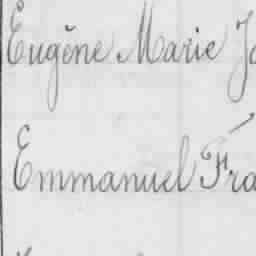 Eugène Marie Jo
Emmanuel Fra